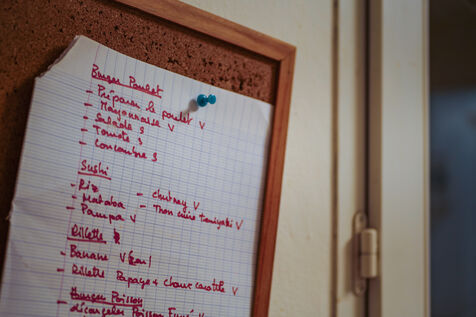 Burger Poulet
- Préparer le poulet V
- Mayonnaise V
- Salade S
- Tomate S
- Concombre S
Sushi
- Riz - Chutney V
- - Thon cuire teriyaki V
- Pampa V
Rillette
- Banane V
- Rillette Papaye + Chaux carotte V
- Burger Poisson
décongeler Poisson Fumé V